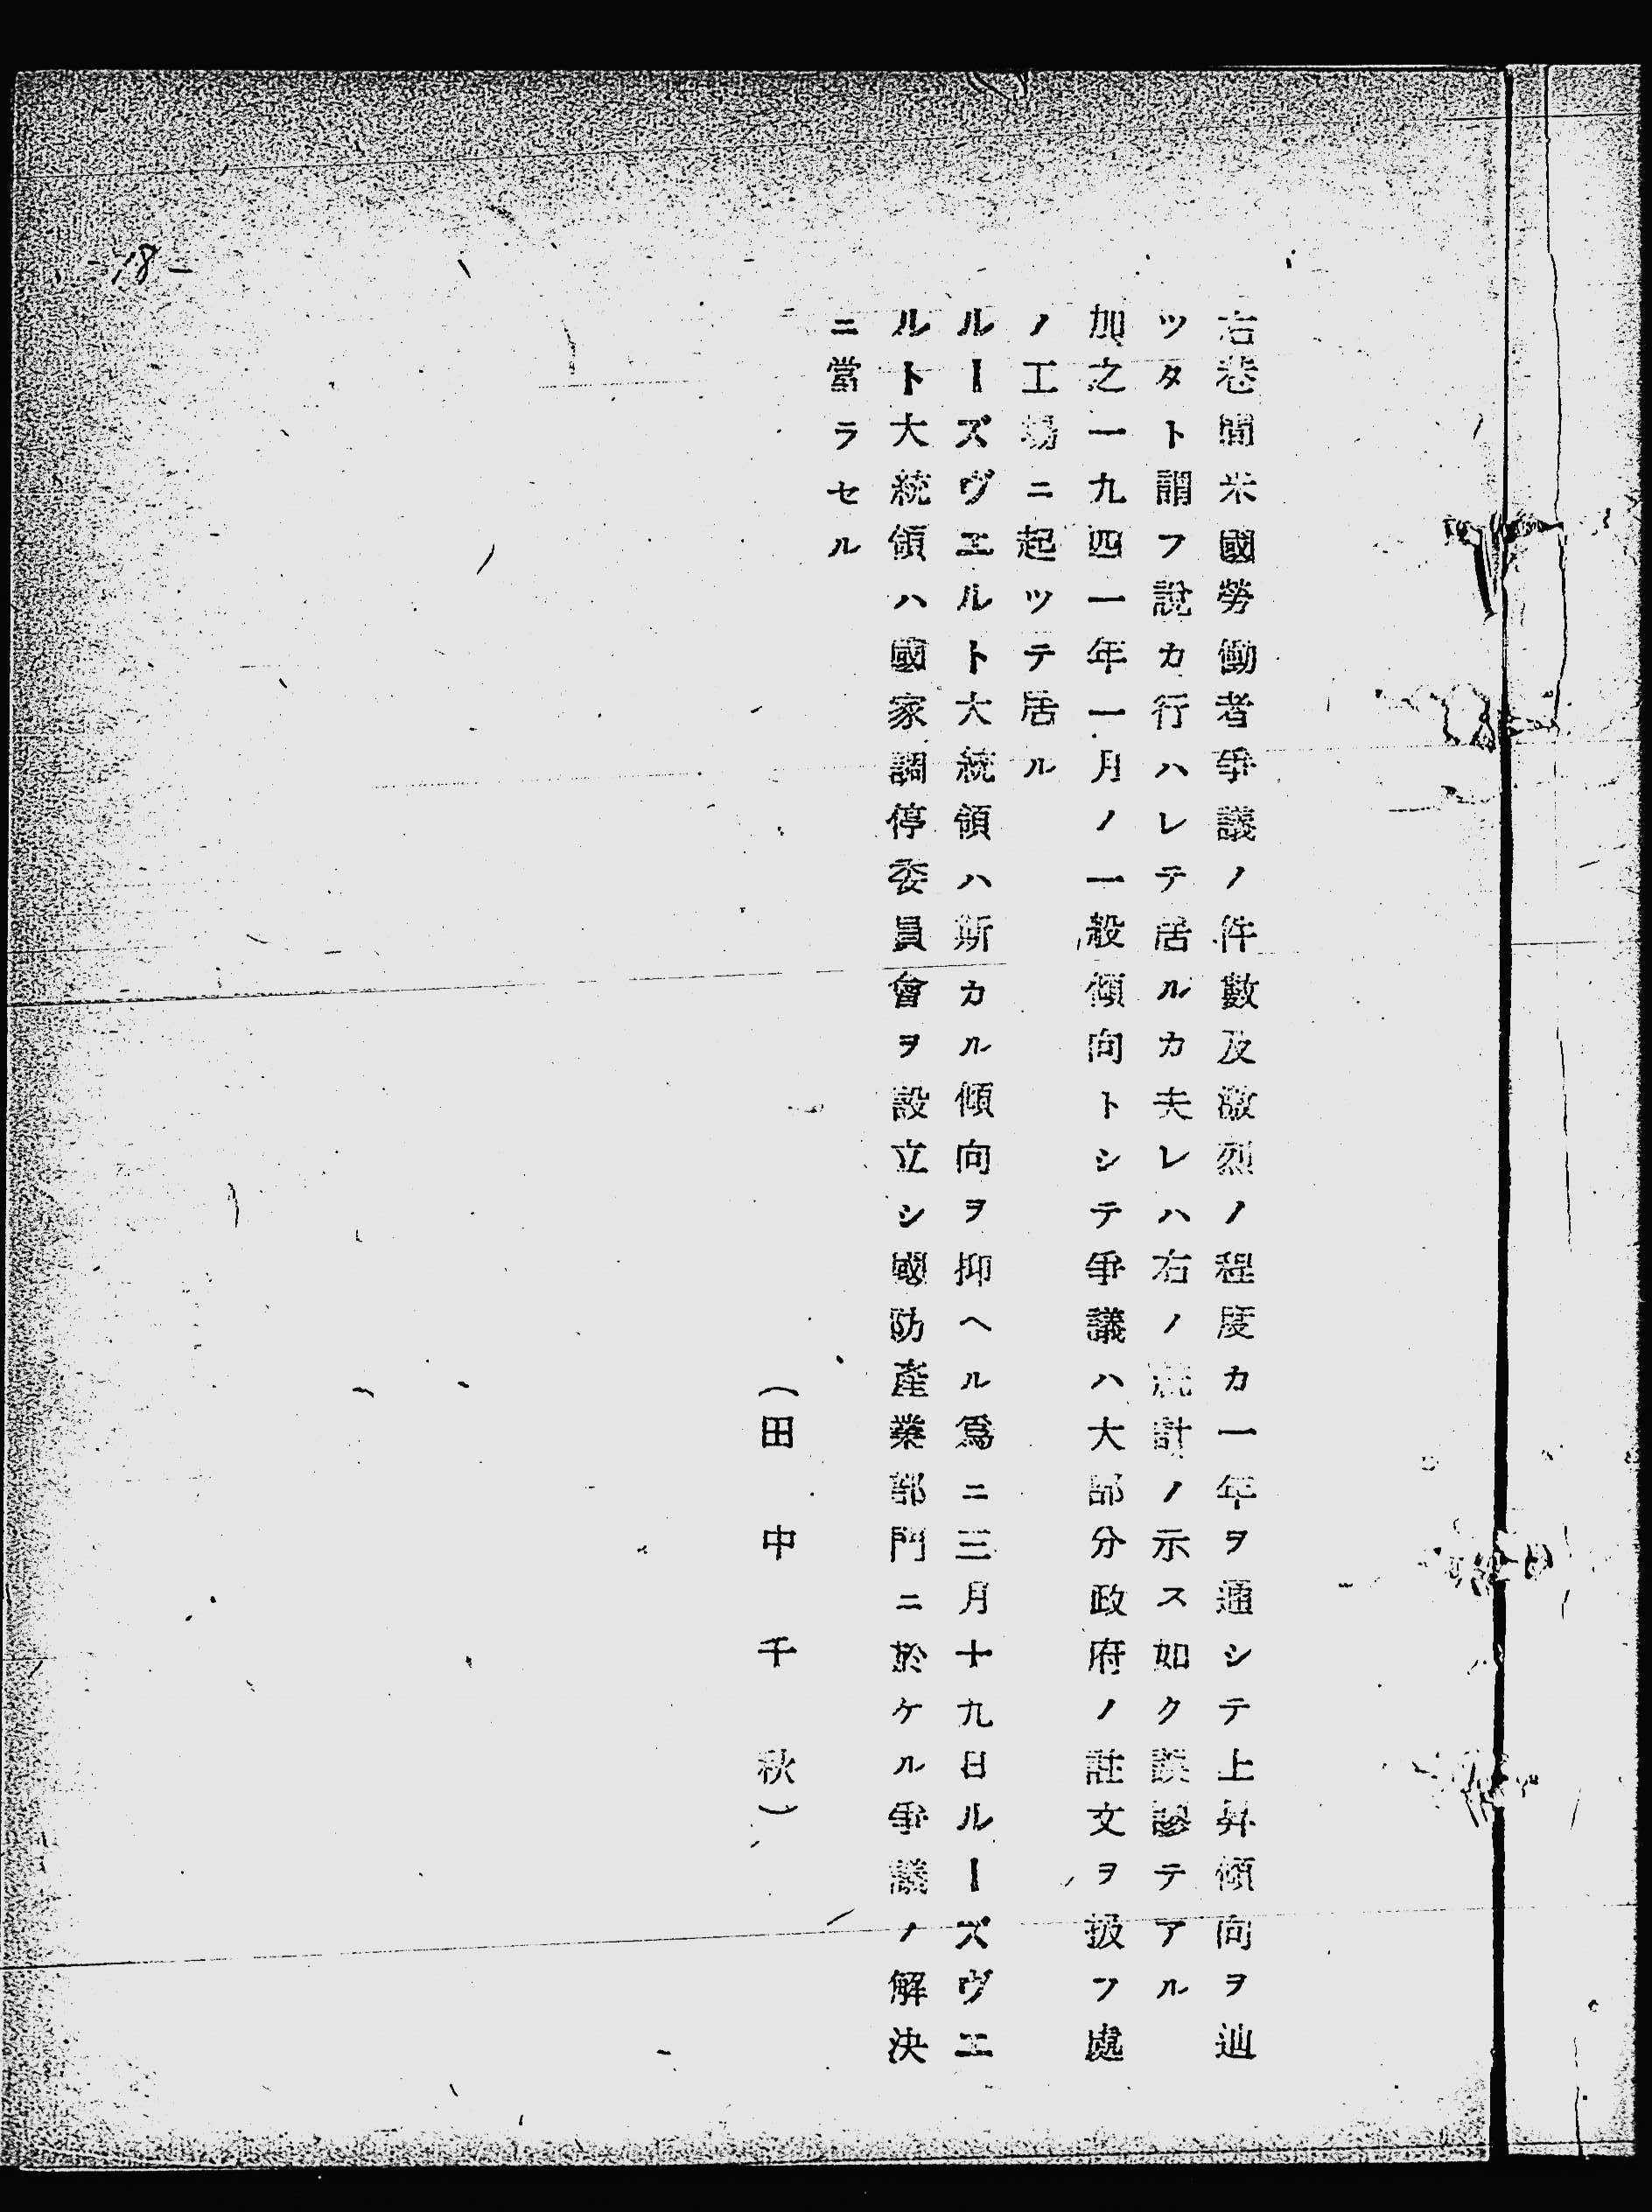 右巷間米國勞働者爭議ノ件數及激烈ノ程度カ一年ヲ通シテ上昇傾向ヲ辿
ツタト謂フ說カ行ハレテ居ルカ夫レハ右ノ統計ノ示ス如ク誤謬テアル
加之一九四一年一月ノ一般傾向トシテ爭議ハ大部分政府ノ註文ヲ扱フ處
ノ工場ニ起ツテ居ル
ルーズヴエルト大統領ハ斯カル傾向ヲ抑ヘル爲ニ三月十九日ルーズヴエ
ルト大統領ハ國家調停委員會ヲ設立シ國防產業部門ニ於ケル爭議ノ解決
ニ當ラセル
（田中千秋）
-78-